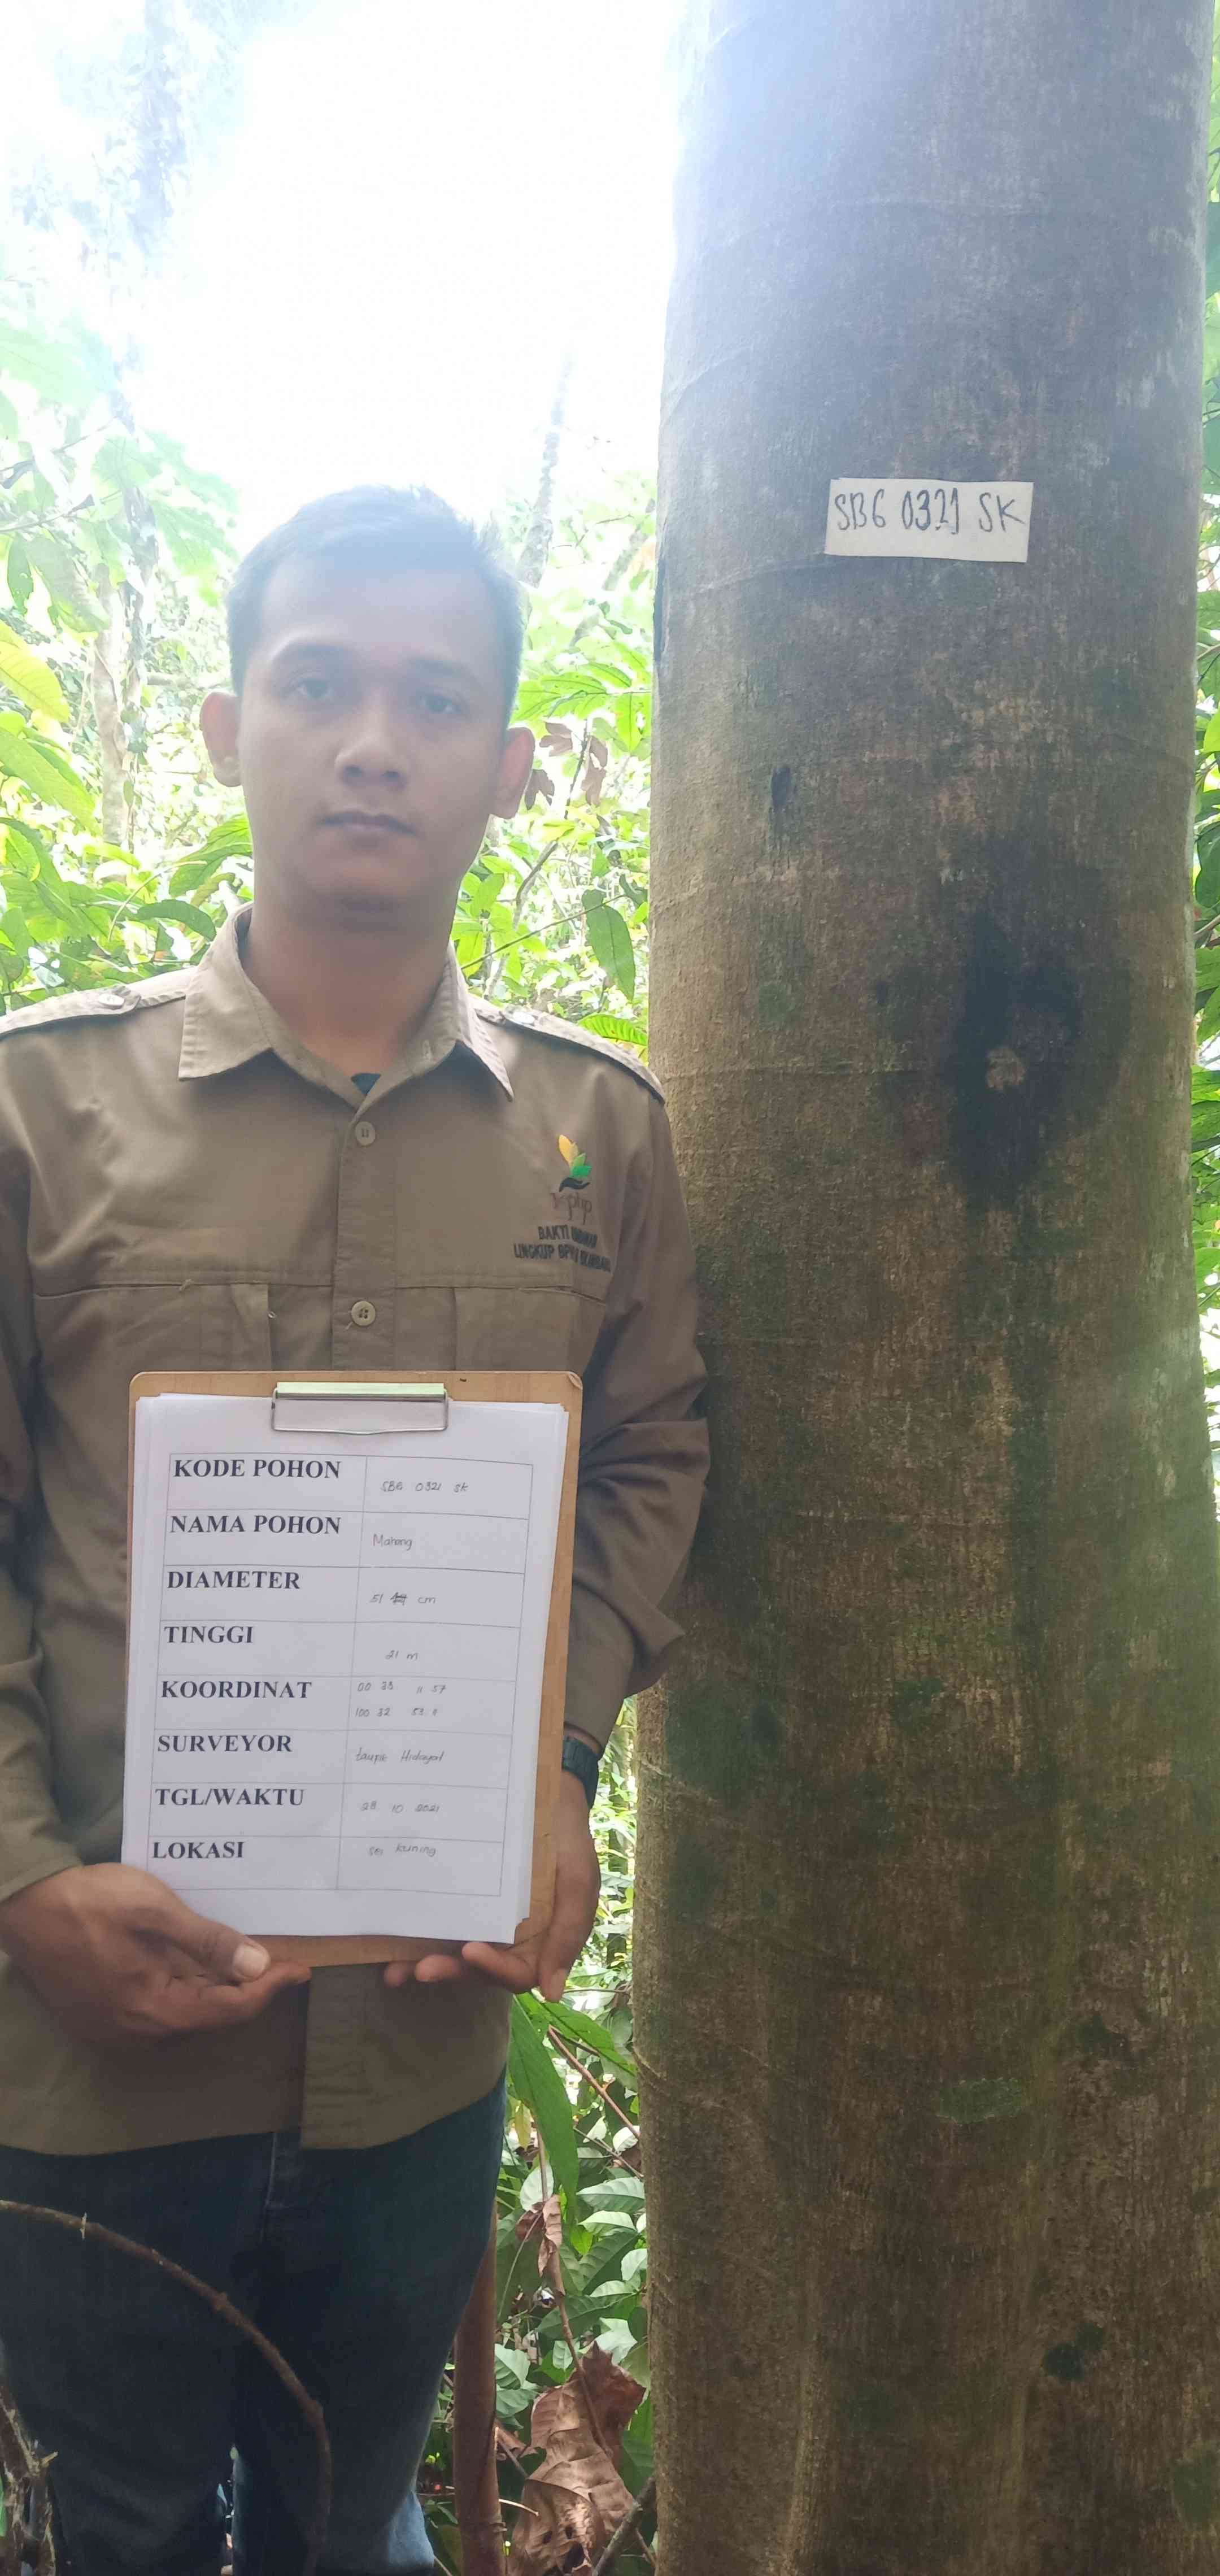 SBG 0321 SK
BAKTI
LINGKUP
KODE POHON SBG 0321 SK
NAMA POHON Mahang
DIAMETER 51 cm
TINGGI 21 m
KOORDINAT 00 33 11 57
100 32 53 11
SURVEYOR taupik Hidayat
TGL/WAKTU 28 10 2021
LOKASI sei kuning